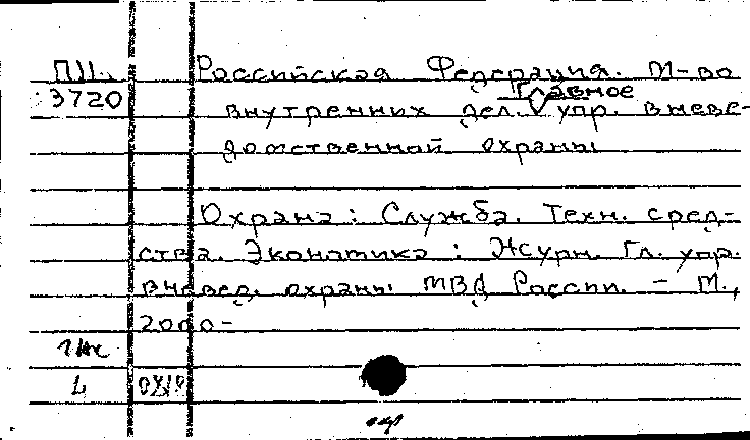 П11 Российская Федерация. М-во
3720 внутренних дел. Главное упр. вневе-
домственной охраны
Охрана: Служба. Техн. сред-
ства. Экономика: Журн. Гл. упр.
вневед. охраны МВД России. - М.,
2000-